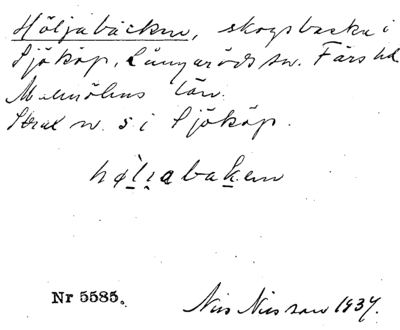 Höljabäcken, skogsbacke i
Sjököp, Långaröds sn. Färs hd
Malmöhus län.
Strax n. s i Sjököp.
høljabakem
Nr 5585.
Nils Nilsson 1934.